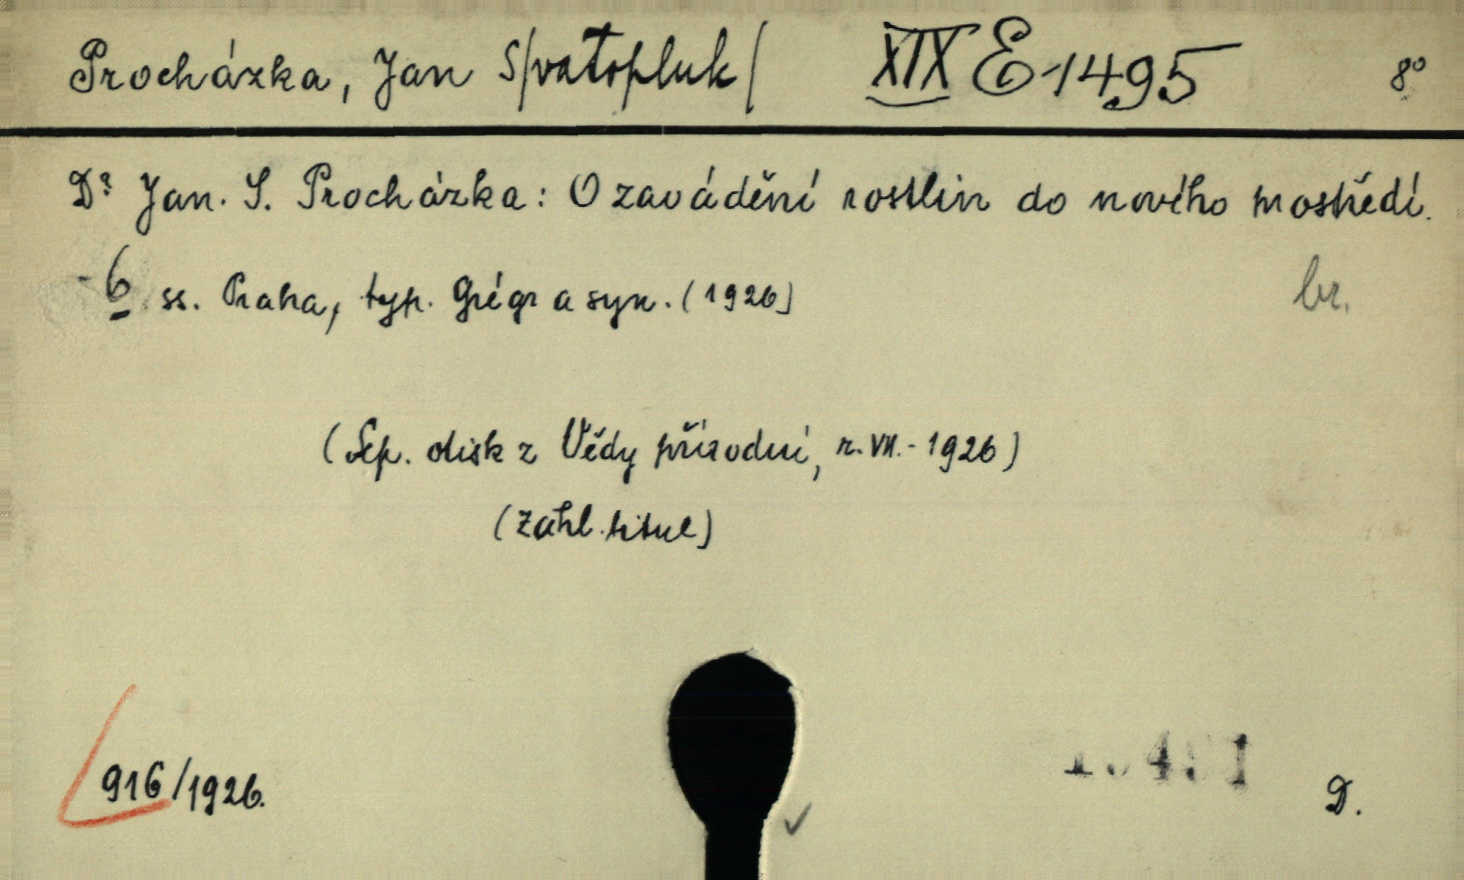 Procházka, Jan S/vatopluk/ XIX E 1495 8°
Dr Jan. S. Procházka: O zavádění rostlin do nového prostředí.
- 6 ss. Praha, typ. Grégr a syn. (1926) br.
(Sep. otisk z Vědy přírodní, r. VII. - 1926)
(Záhl. titul)
916/1926. D.